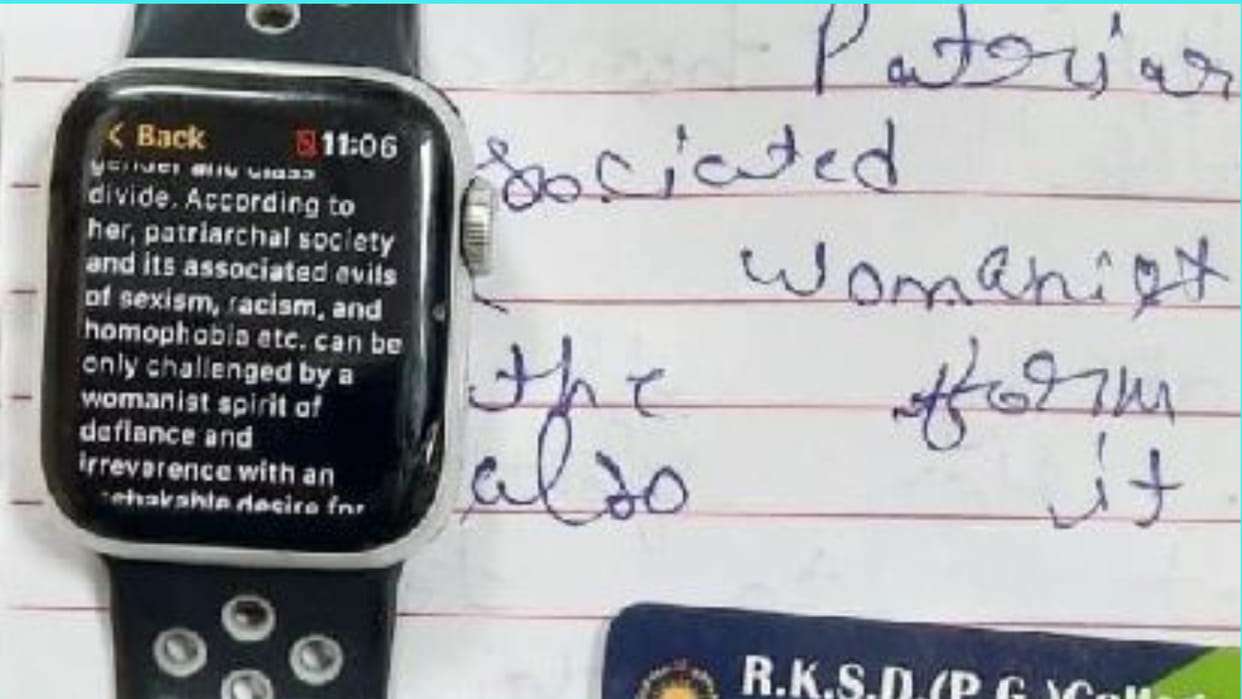 < Back 11:06
gender and class
divide. According to
her, patriarchal society
and its associated evils
of sexism, racism, and
homophobia etc. can be
only challenged by a
womanist spirit of
defiance and
irreverence with an
desire for
Patriar
sociated
womanist
the form
also it
R.K.S.D.(P.G.)